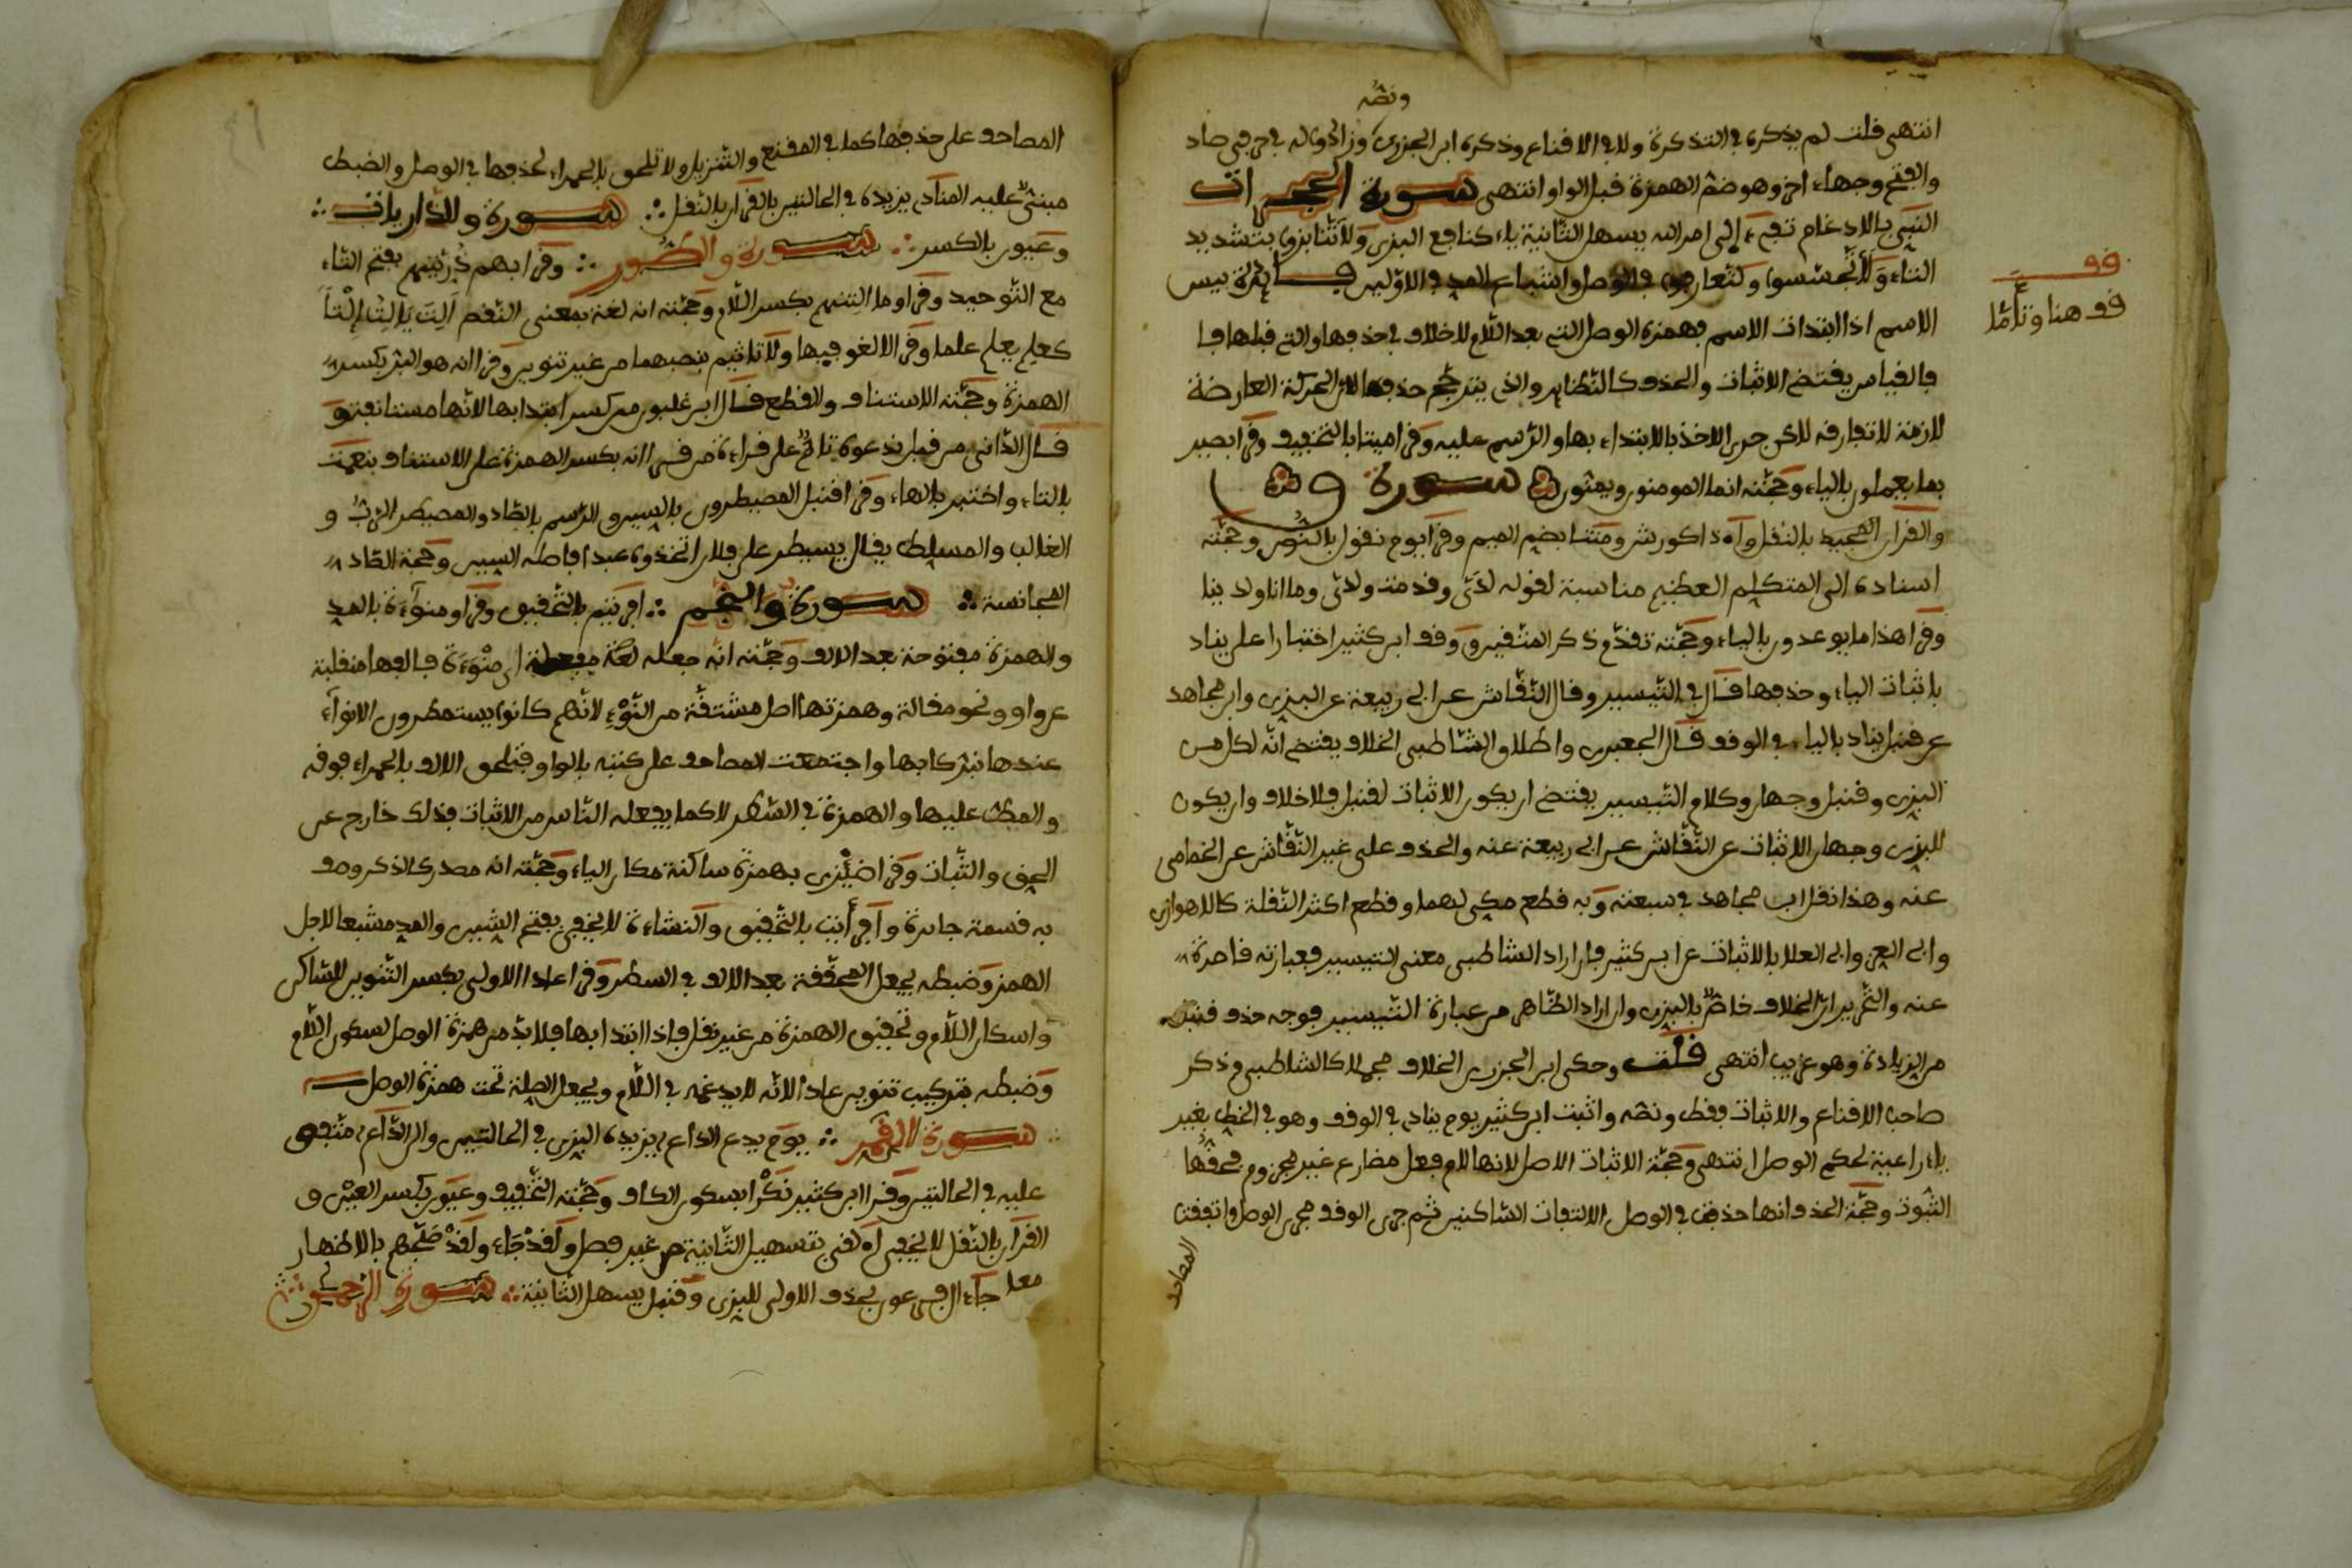 ونصه
انتهى قلت لم يذكره في التذكرة ولا في الاقناع وذكره ابن الجزري وزاد وله في حرفي صاد
والفتح وجهاء اخر وهو ضم الهمزة قبل الواو انتهى سورة الحجرات
النبي بالادغام تفيء الى امر الله يسهل الثانية ياء كنافع البزي ولا تنابزوا بتشديد
التاء ولا تجسسوا ولتعارفوا في الوصل واشباع المد في الاولين فائدة بيس
الاسم اذا ابتدات الاسم فهمزة الوصل التي بعد اللام لا خلاف في حذفها والتي قبلها فا
فالقياس يقتضي الاثبات والحذف كالنظاير والذي يترجح حذفها لان الحركة العارضة
لازمة لا تفارقه لاكن جرى الاخذ بالابتداء بها والرسم عليه وقرا ميتا بالتخفيف وقرا بصير
بما يعملون بالياء وحجته انما المومنون ويمنون سورة ق
والقران المجيد بالنقل وأءذا كورش ومتنا بضم الميم وقرا يوم نقول بالنون وحجته
اسناده الى المتكلم العظيم مناسبة لقوله لدي وقدمت ولدي وما انا ولدينا
وقرا هذا ما يوعدون بالياء وحجته تقدم ذكر المتقين ووقف ابن كثير اختيارا على يناد
باثبات الياء وحذفها قال في التيسير وقال النقاش عن ابي ربيعة عن البزي وابن مجاهد
عن قنبل يناد بالياء في الوقف قال الجعبري واطلاق الشاطبي الخلاف يقتضي انه لكل من
البزي وقنبل وجهان وكلام التيسير يقتضي ان يكون الاثبات لقنبل بلا خلاف وان يكون
للبزي وجهان الاثبات عن النقاش عن ابي ربيعة عنه والحذف على غير النقاش عن الخمامي
عنه وهذا نقل ابن مجاهد في سبعته وبه قطع مكي لهما وقطع اكثر النقلة كالاهوازي
وابي العز وابي العلا بالاثبات عن ابن كثير فان اراد الشاطبي معنى التيسير فعبارته قاصرة
عنه والتحرير ان الخلاف خاص بالبزي وان اراد الظاهر من عبارة التيسير فوجه حذف قنبل
من الزيادة وهو غريب انتهى قلت وحكى ابن الجزري الخلاف مجملا كالشاطبي وذكر
صاحب الاقناع والاثبات فقط ونصه واثبت ابن كثير يوم يناد في الوقف وهو في الخط بغير
ياء راعية لحكم الوصل انتهى وحجة الاثبات الاصل لانها لام فعل مضارع غير مجزوم فحقها
الثبوت وحجة الحذف انها حذفت في الوصل لالتقاء الساكنين ثم جرى الوقف مجرى الوصل واتفقت
المصاحف
قف
قف هنا وتأمل
المصاحف على حذفها كما في المقنع والتنزيل ولا تلحق بالحمراء لحذفها في الوصل والضبط
مبني عليه المناد يزيده في الحالتين بالقرار بالنقل سورة والذاريات
وعيون بالكسر سورة والطور وقرا بهم ذريتهم بفتح التاء
مع التوحيد وقرا وما ألتنهم بكسر اللام وحجته انه لغة بمعنى النقص ألت يألت إلتا
كعلم يعلم علما وقرا لا لغو فيها ولا تاثيم بنصبهما من غير تنوين وقرا انه هو البر بكسر
الهمزة وحجته الاستئناف والقطع قال ابن غلبون من كسر ابتدا بها لانها مستانفة و
قال الداني من قبل ندعوه تام على قراءة من قرا انه بكسر الهمزة على الاستئناف بنعمت
بالتاء واختير بالهاء وقرا قنبل المصيطرون بالسين والرسم بالصاد والمصيطر الرب و
الغالب والمسلط يقال يسيطر على فلان اتخذوه عبدا فاصله السين وحجة الصاد
المجانسة سورة والنجم افريتم بالتحقيق وقرا ومنوآءة بالمد
والهمزة مفتوحة بعد الالف وحجته انه جعله لغة مفعلة اي منوءة فالفها منقلبة
عن واو ونحو مقالة وهمزتها اصل مشتقة من النوء لانهم كانوا يستمطرون الانواء
عندها تبركا بها واجتمعت المصاحف على كتبه بالواو فتلحق الالف بالحمراء فوقه
والمط عليها والهمزة في السطر لا كما يفعله الناس من الاثبات فذلك خارج عن
الحق والثبات وقرا ضئزى بهمزة ساكنة مكان الياء وحجته انه مصدر كالذكر وصف
به قسمة جايرة وأفرأيت بالتحقيق والنشاءة لا يخفى بفتح الشين والمد مشبعا لاجل
الهمز وضبطه بجعل المحققة بعد الالف في السطر وقرا عادا الاولى بكسر التنوين للساكن
واسكان اللام وتحقيق الهمزة من غير نقل فاذا ابتدا بها فلا بد من همزة الوصل لسكون اللام
وضبطه بتركيب تنوين عادا لانه لا يدغمه في اللام ويجعل الصلة تحت همزة الوصل
سورة القمر يوم يدع الداع يزيده البزي في الحالتين والى الداع متفق
عليه في الحالتين وقرا ابن كثير نكر بسكون الكاف وحجته التخفيف وعيون بكسر العين و
القرآن بالنقل لا يخفى أءلقي بتسهيل الثانية من غير فصل ولقد جاء ولقد صبحهم بالاظهار
معا جآء ال فرعون بحذف الاولى للبزي وقنبل يسهل الثانية سورة الرحمن